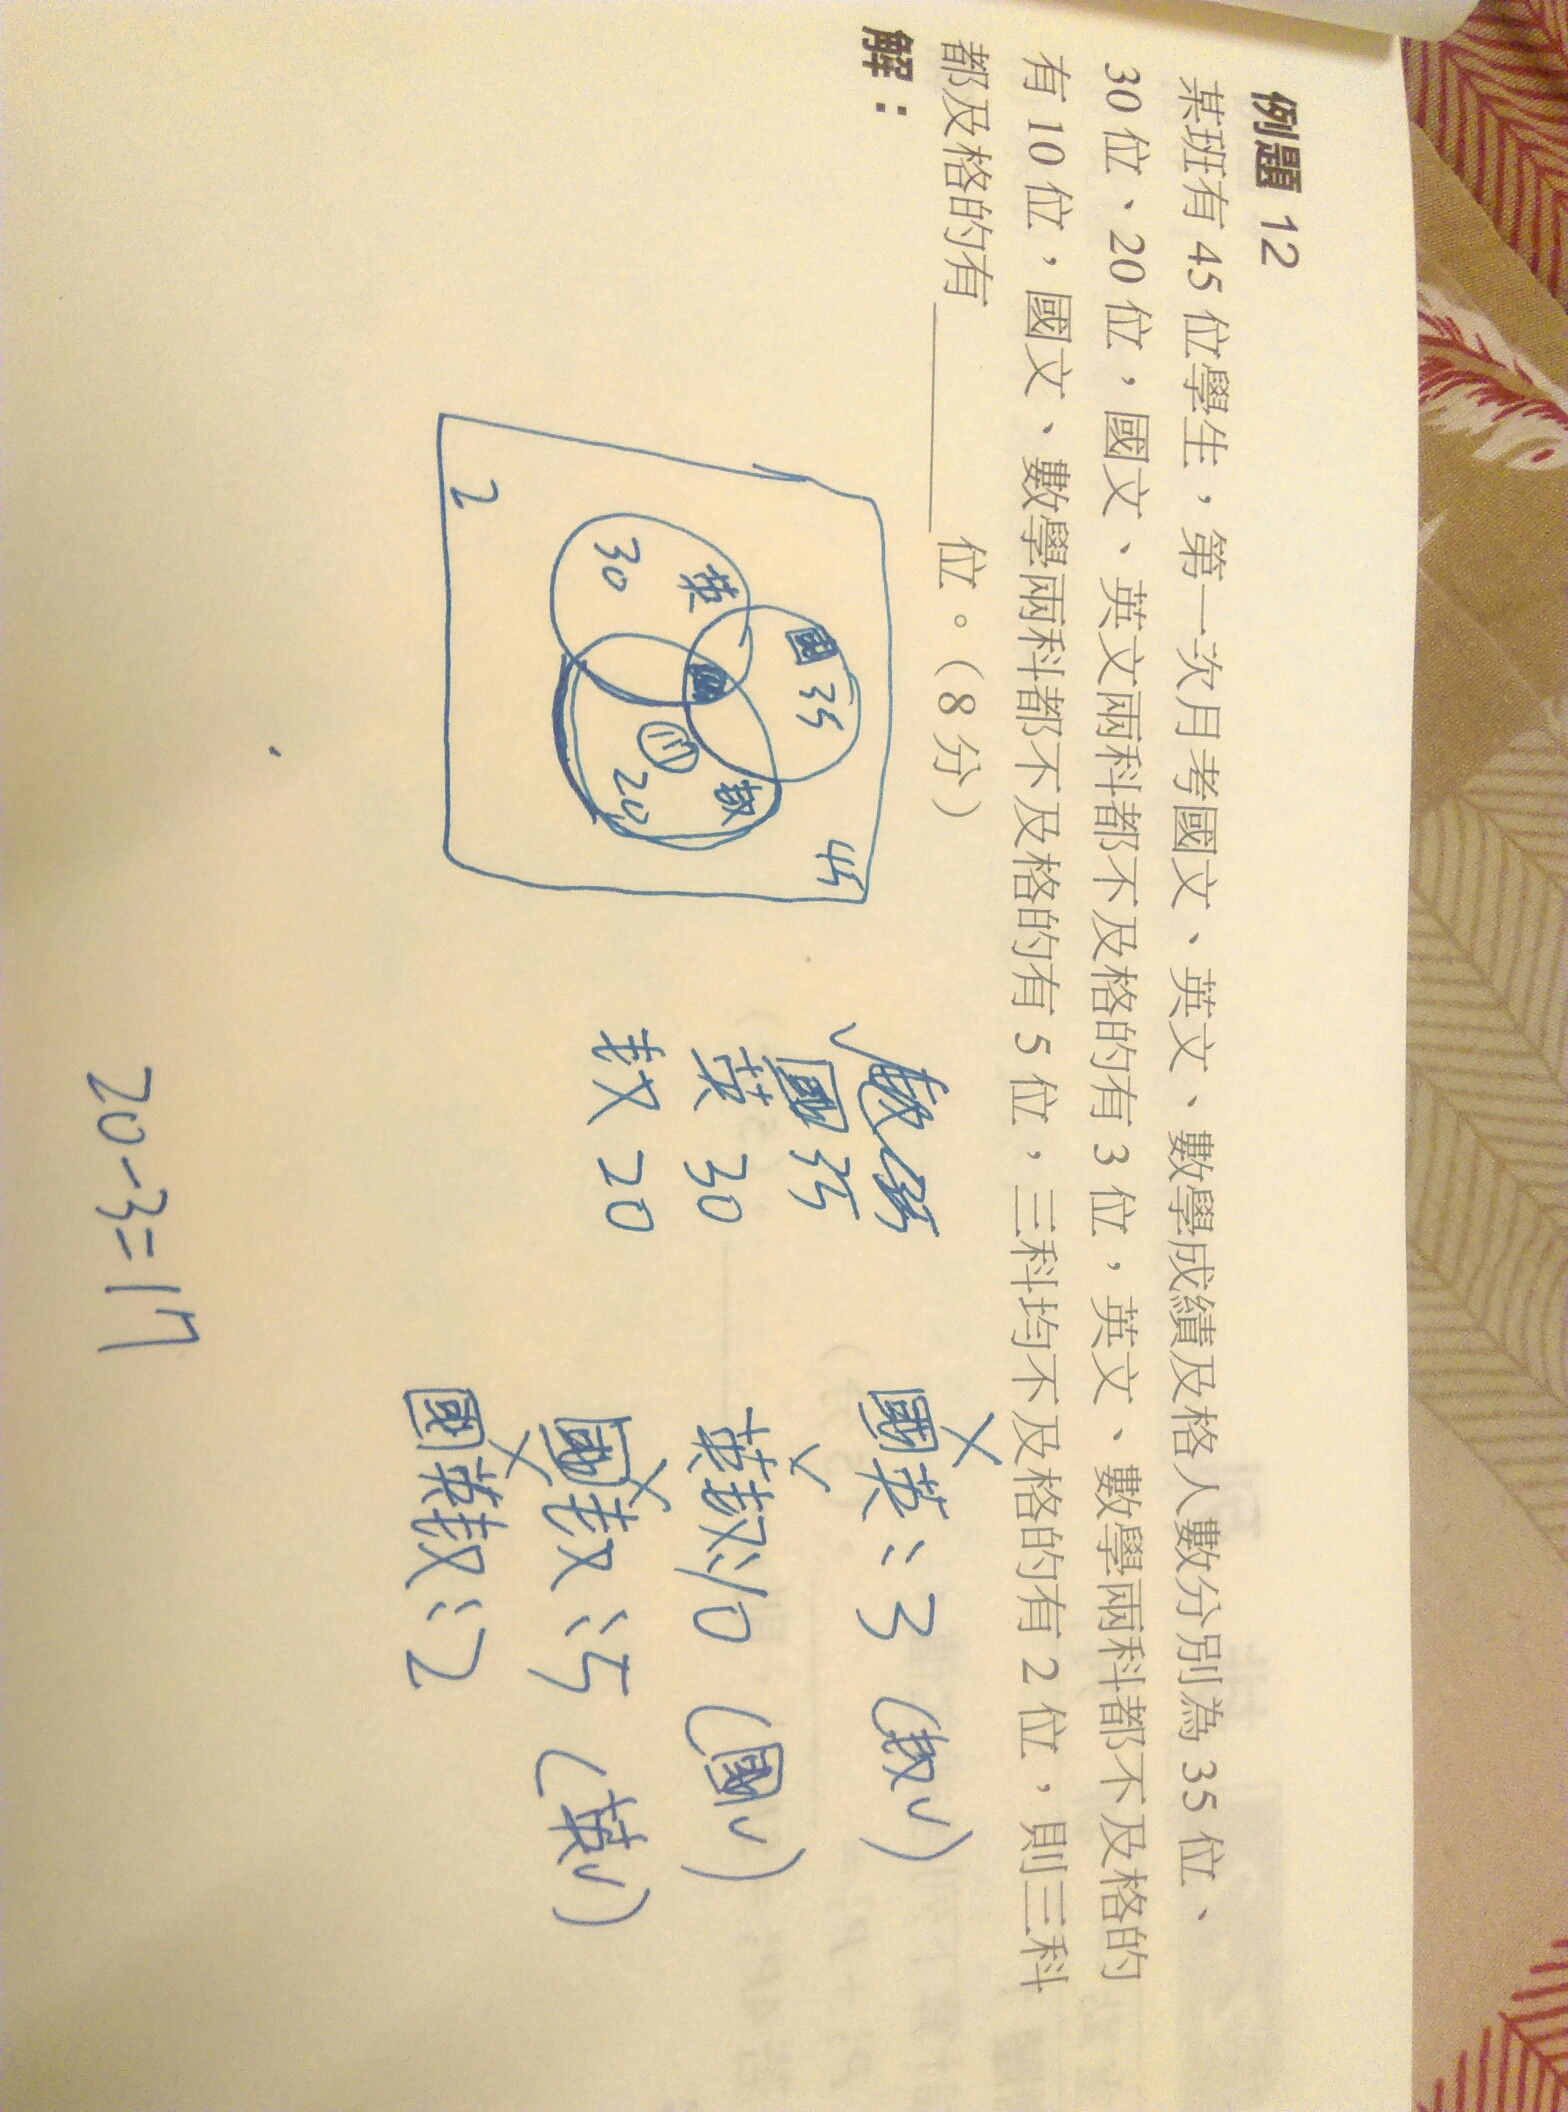 例題 12
某班有 45 位學生，第一次月考國文、英文、數學成績及格人數分別為 35 位、
30 位、20 位，國文、英文兩科都不及格的有 3 位，英文、數學兩科都不及格的
有 10 位，國文、數學兩科都不及格的有 5 位，三科均不及格的有 2 位，則三科
都及格的有______位。（8 分）
解：
45
國 35
英
數
30
20
17
2
國 35
英 30
数 20
✓
×
國英：3（数✓）
×
英数：10（國✓）
×
國数：5（英✓）
×
國英数：2
20-3=17